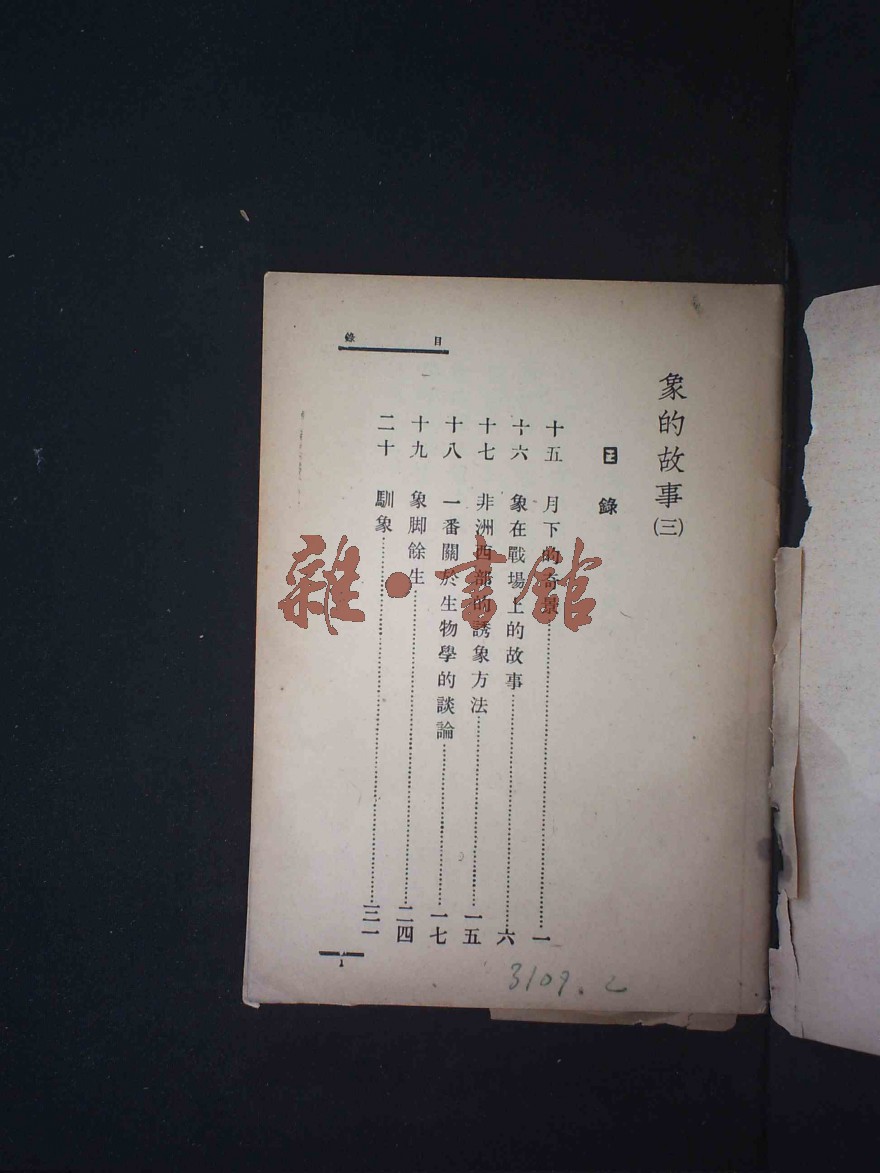 象的故事(三)
目錄
十五 月下的奇景 一
十六 象在戰場上的故事 六
十七 非洲西部的誘象方法 一五
十八 一番關於生物學的談論 一七
十九 象脚餘生 二四
二十 馴象 三一
目錄
1
3109.2
雜·書館